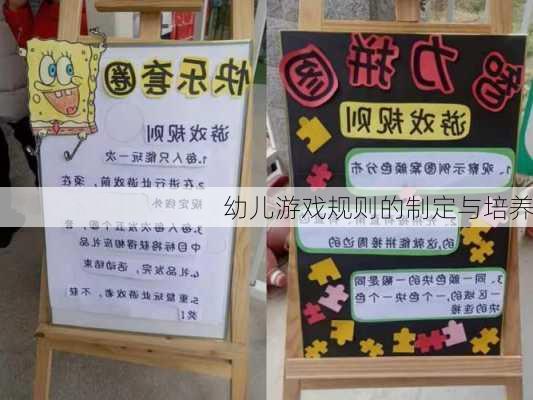 快乐套圈
游戏规则
1.每人只能玩一次
2.在进行此游戏前，须在
规定线外
3.每人每次发五个圈，套
中目标将获得相应礼品
4.礼品发完，活动结束
5.重复玩此游戏者，不获
奖
智力拼图
游戏规则
1、观察示例图案颜色分布
的这就能拼接周边的
3、同一颜色块的一般是同
一区域的，一个色块一个色
块的连接
幼儿游戏规则的制定与培养